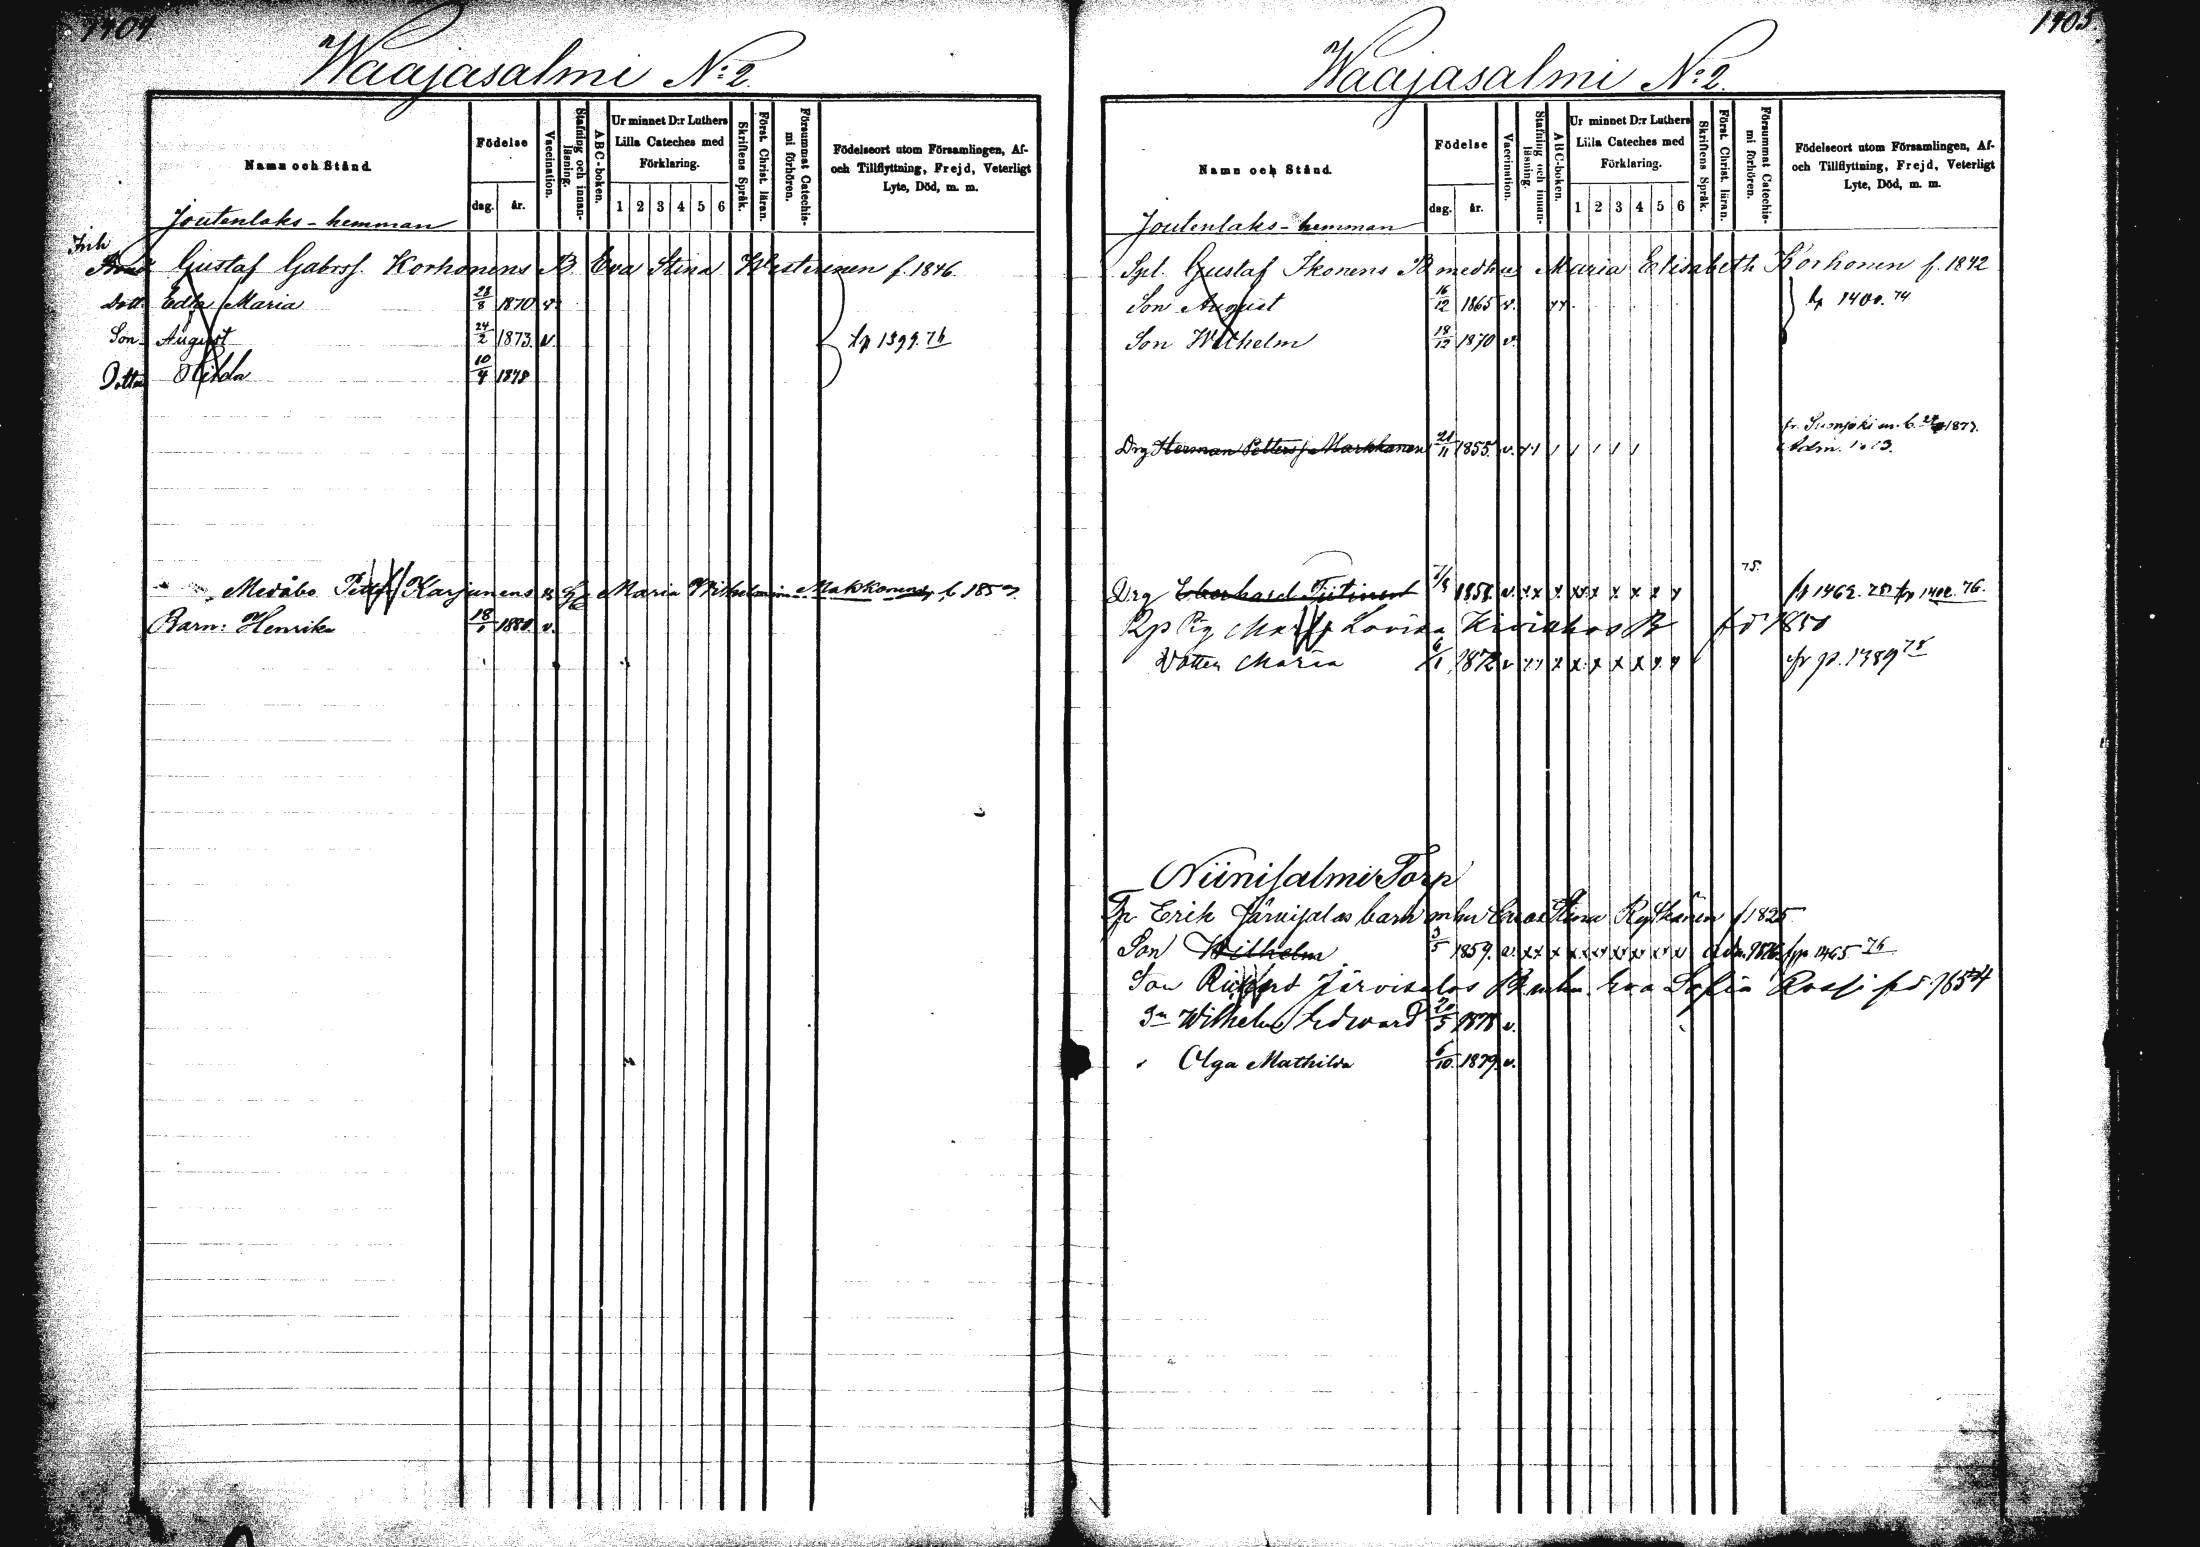 1404
Waajasalmi No: 2.
Namn och Stånd.
Födelse
dag. år.
Vaccination.
Stafning och innanläsning.
ABC-boken.
Ur minnet D:r Luthers Lilla Cateches med Förklaring.
1 2 3 4 5 6
Skriftens Språk.
Förest. Christ. läran.
Försummat Catechismi förhören.
Födelseort utom Församlingen, Af- och Tillflyttning, Frejd, Veterligt Lyte, Död, m. m.
Joutenlaks-hemman
Inh
Gustaf Gabrsf. Korhonens B. Eva Stina Westerinen f. 1846.
Dott. Edla Maria 28/8 1870 v.
Son August 24/2 1873. v. tp 1399. 76
Dotter Hilda 10/4 1878
Medåbo Karjunens Maria Wilhelmina Makkonen
Barn: Henrik 1880 v.
1405.
Waajasalmi No: 2.
Namn och Stånd.
Födelse
dag. år.
Vaccination.
Stafning och innanläsning.
ABC-boken.
Ur minnet D:r Luthers Lilla Cateches med Förklaring.
1 2 3 4 5 6
Skriftens Språk.
Förest. Christ. läran.
Försummat Catechismi förhören.
Födelseort utom Församlingen, Af- och Tillflyttning, Frejd, Veterligt Lyte, Död, m. m.
Joutenlaks-hemman
Spl. Gustaf Ikonens B med hu Maria Elisabeth Korhonen f. 1842
Son August 16/12 1865 v. tp 1400. 74
Son Wilhelm 18/12 1870 v.
Drg Herman Petters Markkanen 21/11 1855. v.
75.
Drg Eberhard Tiitinen 1858. v. x x x x x x x fp 1462. 75. tp 1402. 76.
Pig Lovisa B föd 1850
Dotter Maria 1872 v x x x x x x x fr p. 1389 78
Niinisalmi Torp
Tp Erik Järvisalos barn m hu Stina Rytkönen f 1825
Son Wilhelm 3/5 1859. v. x x x x x x x x 1465 76
Son Järvisalos B m hu Eva Sofia Rossi föd 1854
Sn Wilhelm Edvard 20/5 1878 v.
Olga Mathilda 6/10 1879. v.